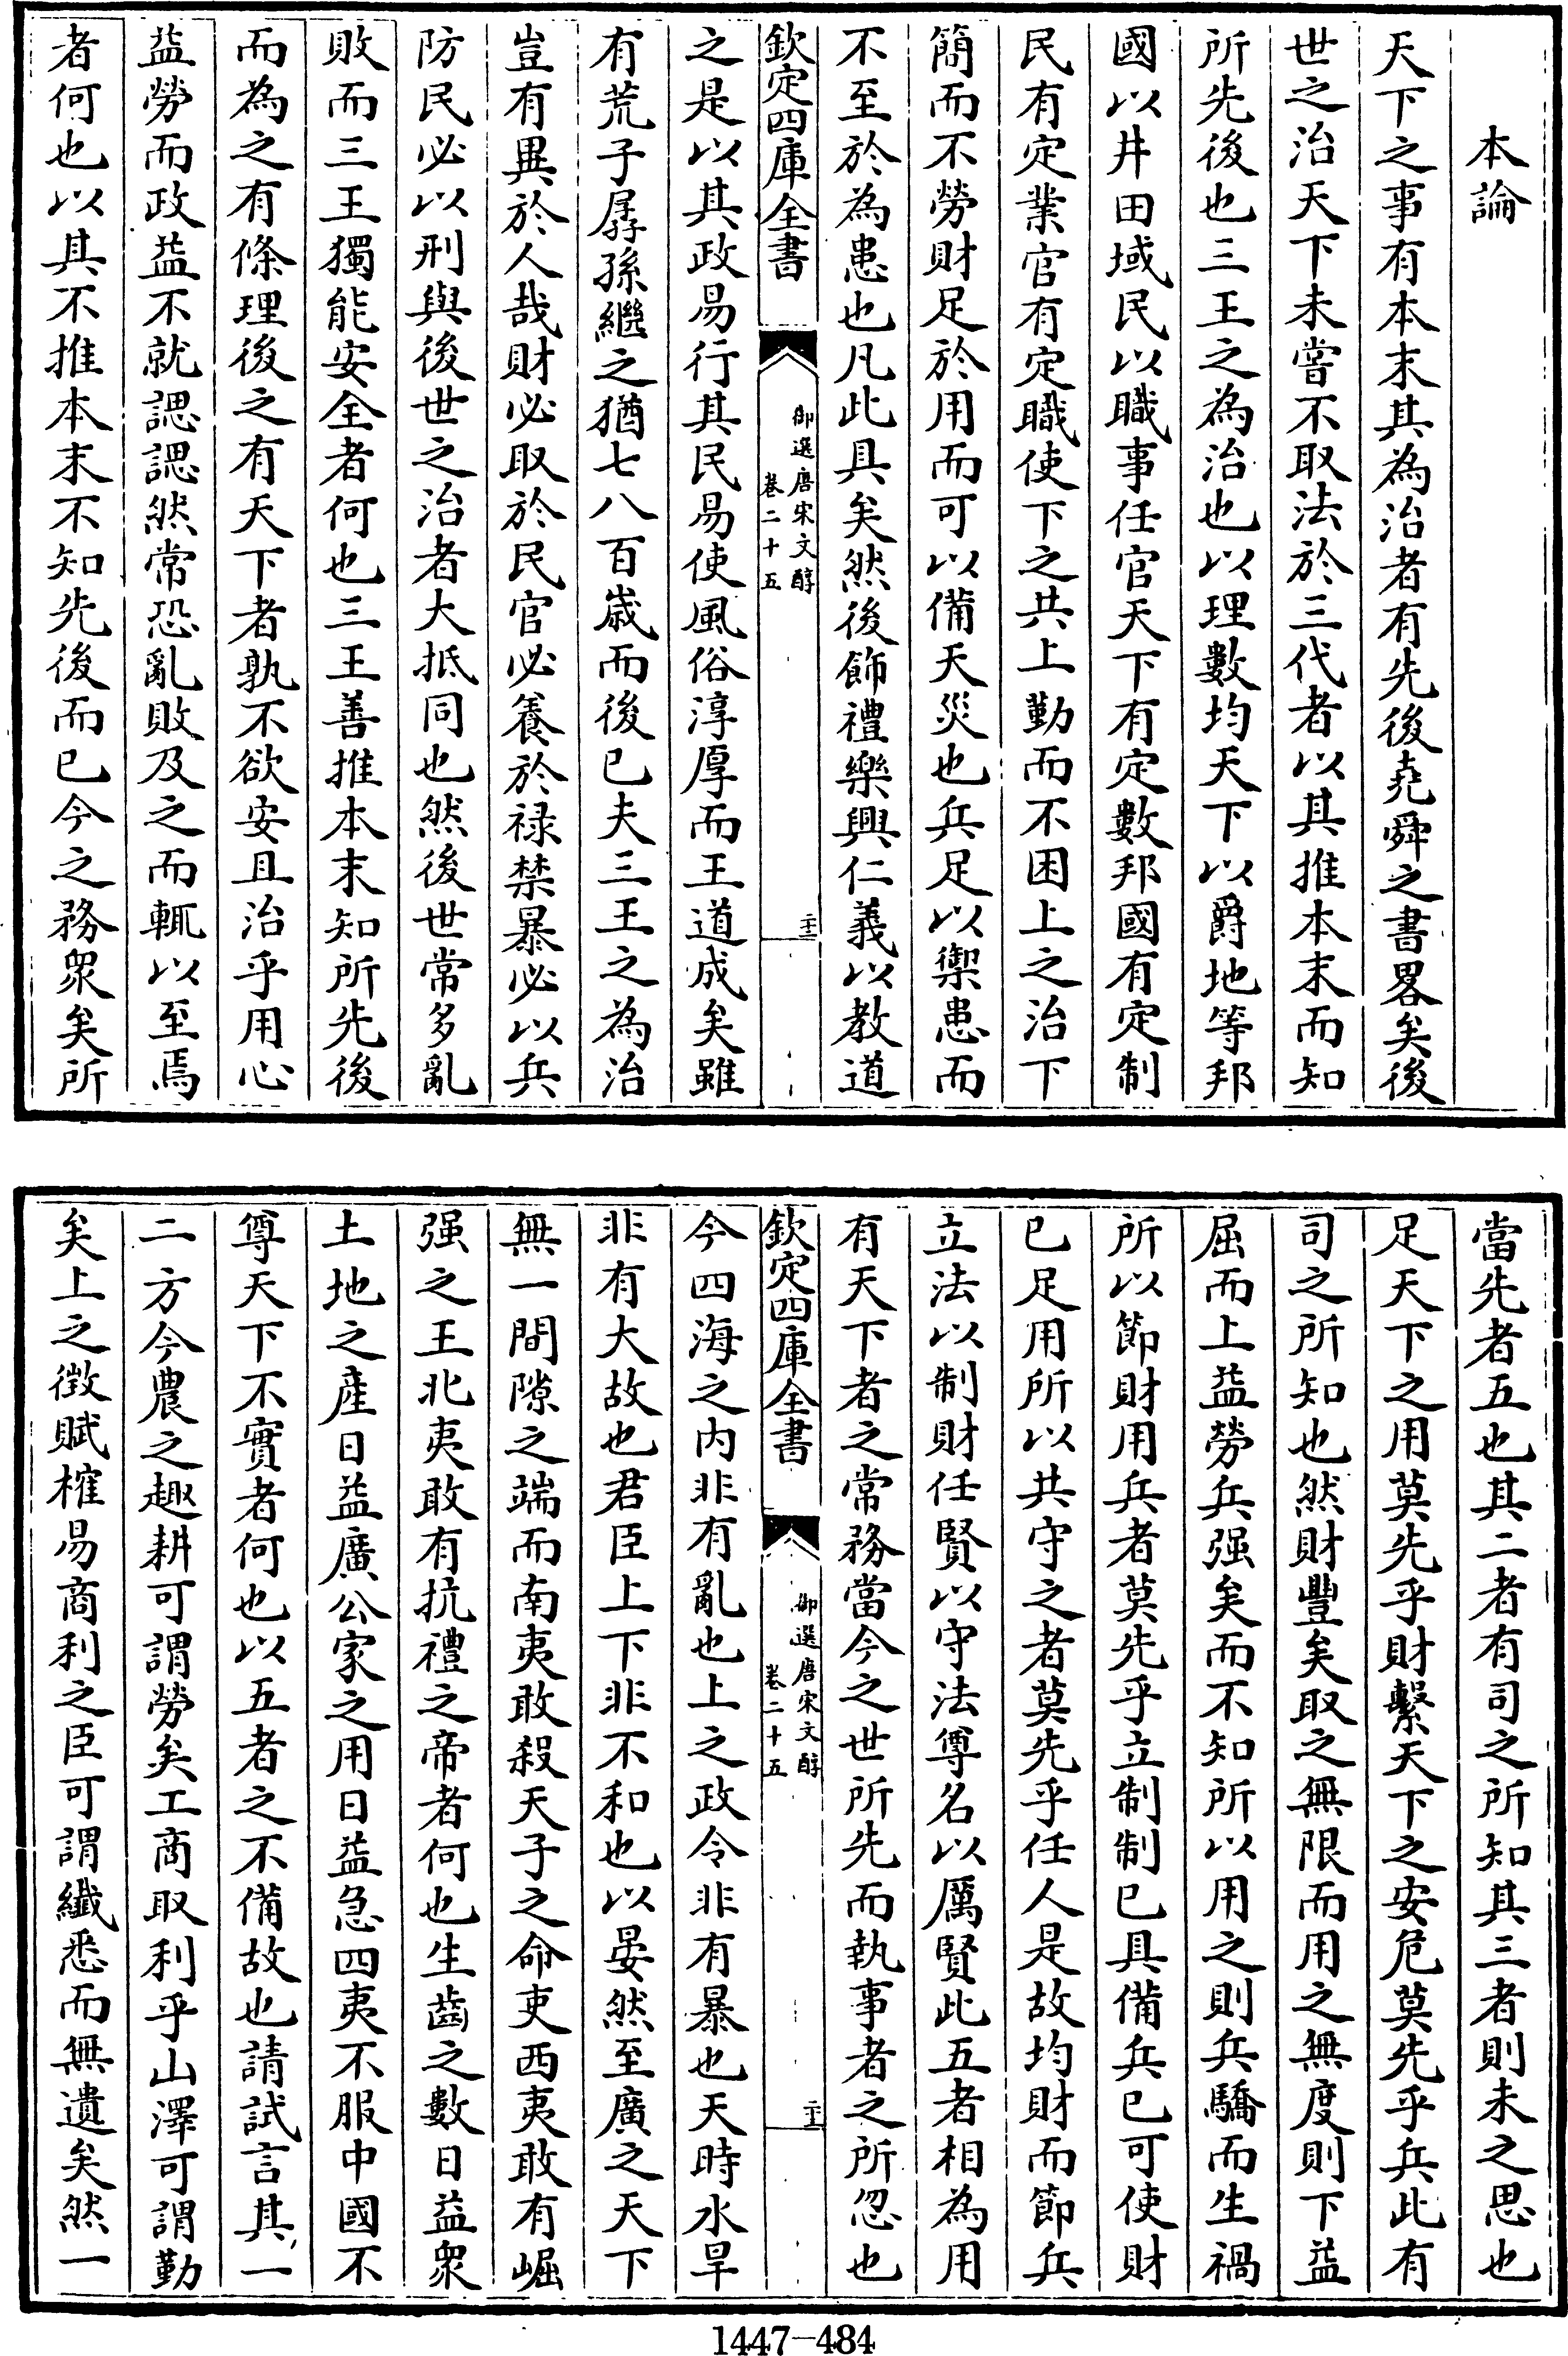 本論
天下之事有本末其為治者有先後堯舜之書畧矣後
世之治天下未嘗不取法於三代者以其推本末而知
所先後也三王之為治也以理數均天下以爵地等邦
國以井田域民以職事任官天下有定數邦國有定制
民有定業官有定職使下之共上勤而不困上之治下
簡而不勞財足於用而可以備天災也兵足以禦患而
不至於為患也凡此具矣然後飾禮樂興仁義以教道
欽定四庫全書
御選唐宋文醇
卷二十五
二十二
之是以其政易行其民易使風俗淳厚而王道成矣雖
有荒子孱孫繼之猶七八百歲而後已夫三王之為治
豈有異於人哉財必取於民官必養於祿禁暴必以兵
防民必以刑與後世之治者大抵同也然後世常多亂
敗而三王獨能安全者何也三王善推本末知所先後
而為之有條理後之有天下者孰不欲安且治乎用心
益勞而政益不就諰諰然常恐亂敗及之而輒以至焉
者何也以其不推本末不知先後而已今之務衆矣所
當先者五也其二者有司之所知其三者則未之思也
足天下之用莫先乎財繫天下之安危莫先乎兵此有
司之所知也然財豐矣取之無限而用之無度則下益
屈而上益勞兵强矣而不知所以用之則兵驕而生禍
所以節財用兵者莫先乎立制制已具備兵已可使財
已足用所以共守之者莫先乎任人是故均財而節兵
立法以制財任賢以守法尊名以厲賢此五者相為用
有天下者之常務當今之世所先而執事者之所忽也
欽定四庫全書
御選唐宋文醇
卷二十五
今四海之内非有亂也上之政令非有暴也天時水旱
非有大故也君臣上下非不和也以晏然至廣之天下
無一間隙之端而南夷敢殺天子之命吏西夷敢有崛
强之王北夷敢有抗禮之帝者何也生齒之數日益衆
土地之產日益廣公家之用日益急四夷不服中國不
尊天下不實者何也以五者之不備故也請試言其一
二方今農之趣耕可謂勞矣工商取利乎山澤可謂勤
矣上之徴賦榷易商利之臣可謂纖悉而無遺矣然一
1447-484